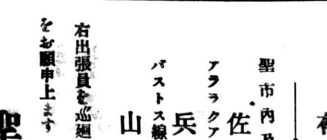 聖市内及
アララクア
バストス線
佐
兵
山
右出張員を巡廻
をお願申上ます